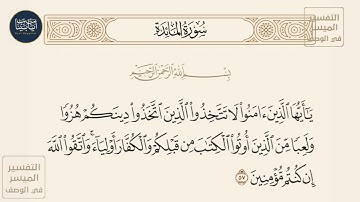 سُورَةُ المَائِدَةِ
التفسير
الميسر
في الوصف
بِسْمِ اللَّهِ الرَّحْمَٰنِ الرَّحِيمِ
يَٰٓأَيُّهَا ٱلَّذِينَ ءَامَنُواْ لَا تَتَّخِذُواْ ٱلَّذِينَ ٱتَّخَذُواْ دِينَكُمْ هُزُوًا
وَلَعِبًا مِّنَ ٱلَّذِينَ أُوتُواْ ٱلْكِتَٰبَ مِن قَبْلِكُمْ وَٱلْكُفَّارَ أَوْلِيَآءَۚ وَٱتَّقُواْ ٱللَّهَ
إِن كُنتُم مُّؤْمِنِينَ ٥٧
التفسير
الميسر
في الوصف